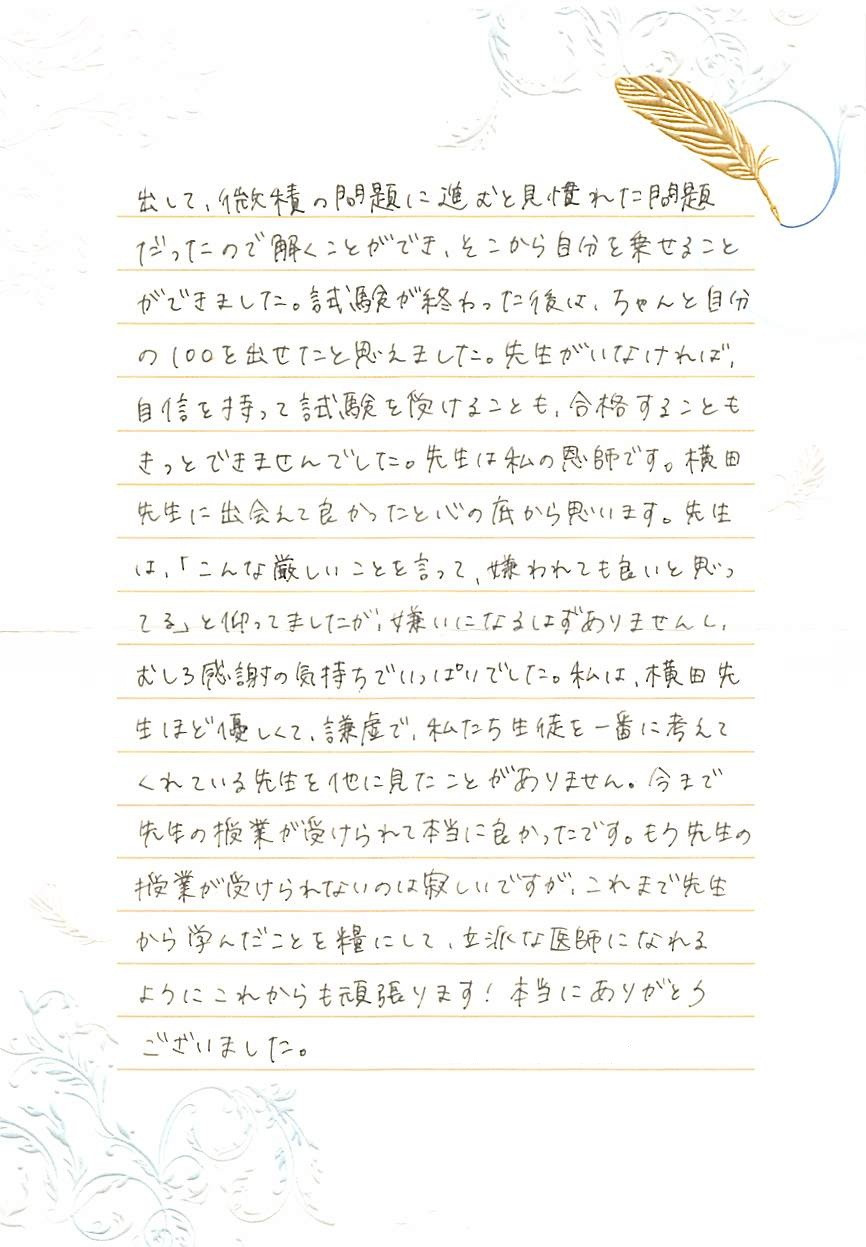 出して、微積の問題に進むと見慣れた問題
だったので解くことができ、そこから自分を乗せること
ができました。試験が終わった後は、ちゃんと自分
の100を出せたと思えました。先生がいなければ、
自信を持って試験を受けることも、合格することも
きっとできませんでした。先生は私の恩師です。横田
先生に出会えて良かったと心の底から思います。先生
は、「こんな厳しいことを言って、嫌われても良いと思っ
てる」と仰ってましたが、嫌いになるはずありませんし、
むしろ感謝の気持ちでいっぱいでした。私は、横田先
生ほど優しくて、謙虚で、私たち生徒を一番に考えて
くれている先生を他に見たことがありません。今まで
先生の授業が受けられて本当に良かったです。もう先生の
授業が受けられないのは寂しいですが、これまで先生
から学んだことを糧にして、立派な医師になれる
ようにこれからも頑張ります！本当にありがとう
ございました。